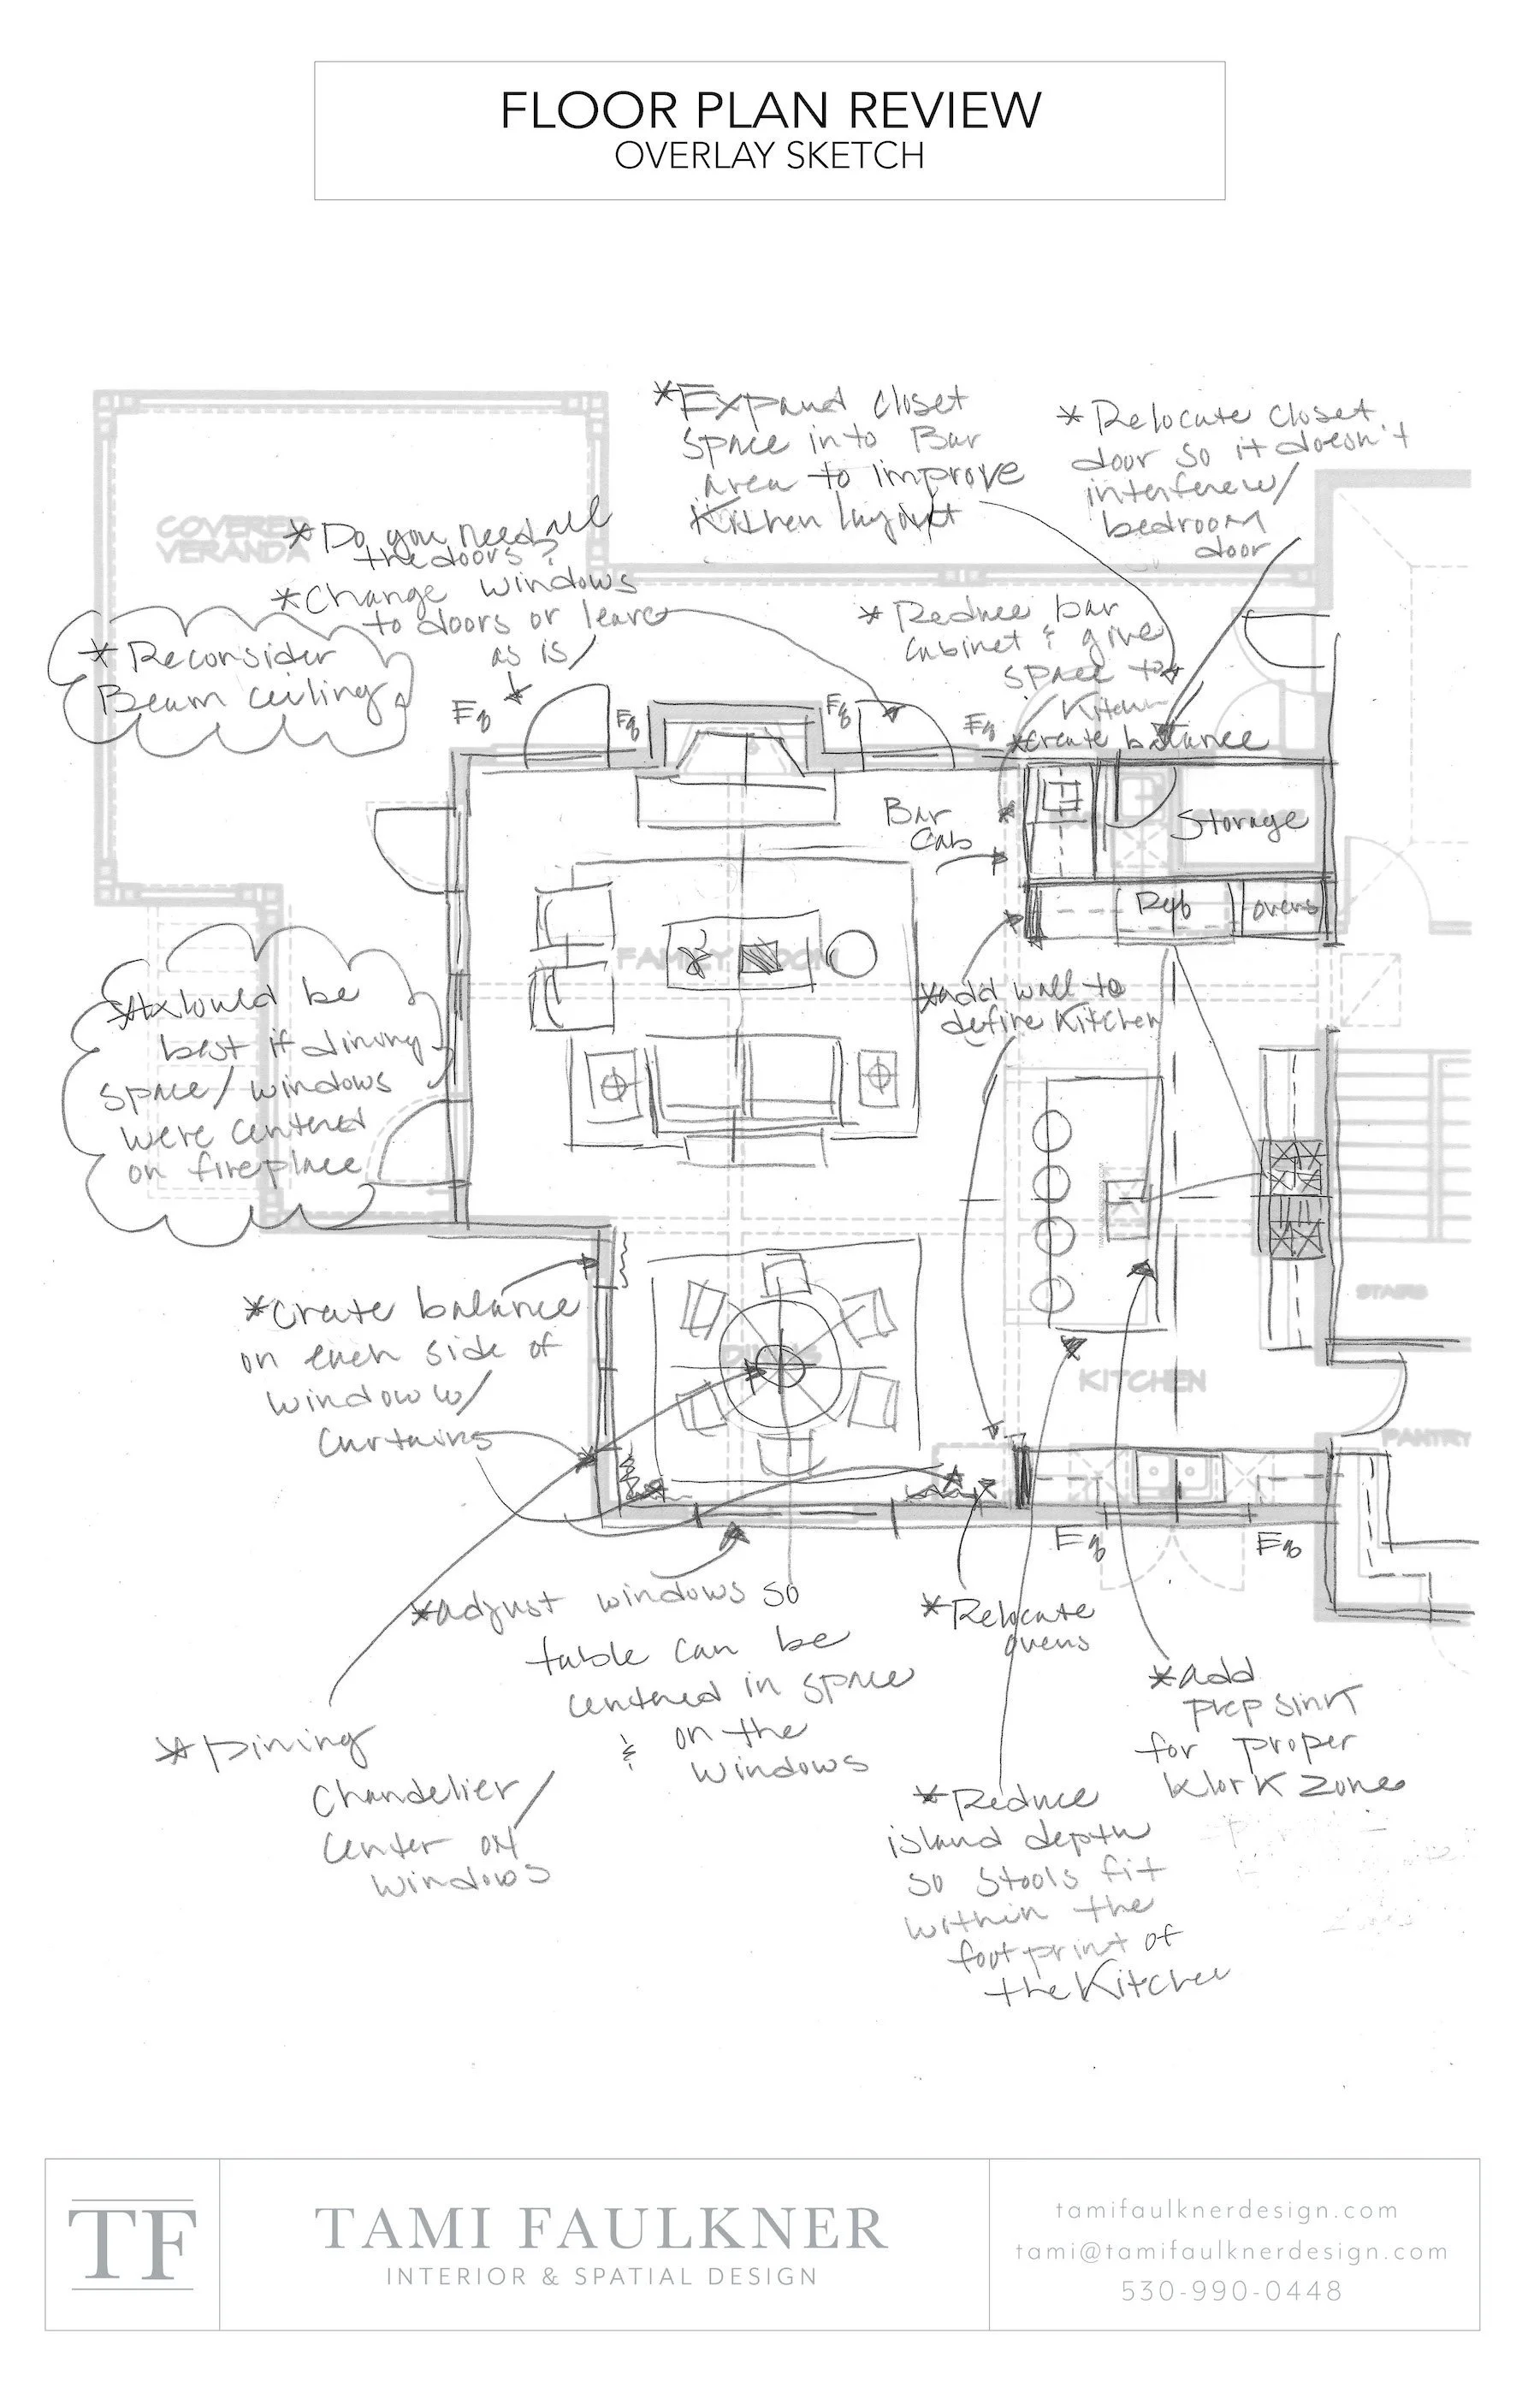 FLOOR PLAN REVIEW
OVERLAY SKETCH
*Expand closet
space into Bar
area to improve
Kitchen layout
*Relocate closet
door so it doesn't
interfere w/
bedroom
door
COVERED
VERANDA
*Do you need all
the doors?
*Change windows
to doors or leave
as is/
*Reconsider
Beam ceiling
*Reduce bar
cabinet & give
space to
Kitchen
*create balance
Eq
Eq
Eq
Eq
Bar
Cab
Storage
Ref
ovens
FAMILY ROOM
*add wall to
define Kitchen
*It would be
best if dining
space/windows
were centered
on fireplace
STAIRS
*Create balance
on each side of
window w/
Curtains
DINING
KITCHEN
PANTRY
Eq
Eq
*adjust windows so
table can be
centered in space
& on the
windows
*Relocate
ovens
*add
prep sink
for proper
work zones
*Dining
Chandelier/
Center on
windows
*Reduce
island depth
so stools fit
within the
footprint of
the Kitchen
TF
TAMI FAULKNER
INTERIOR & SPATIAL DESIGN
tamifaulknerdesign.com
tami@tamifaulknerdesign.com
530-990-0448